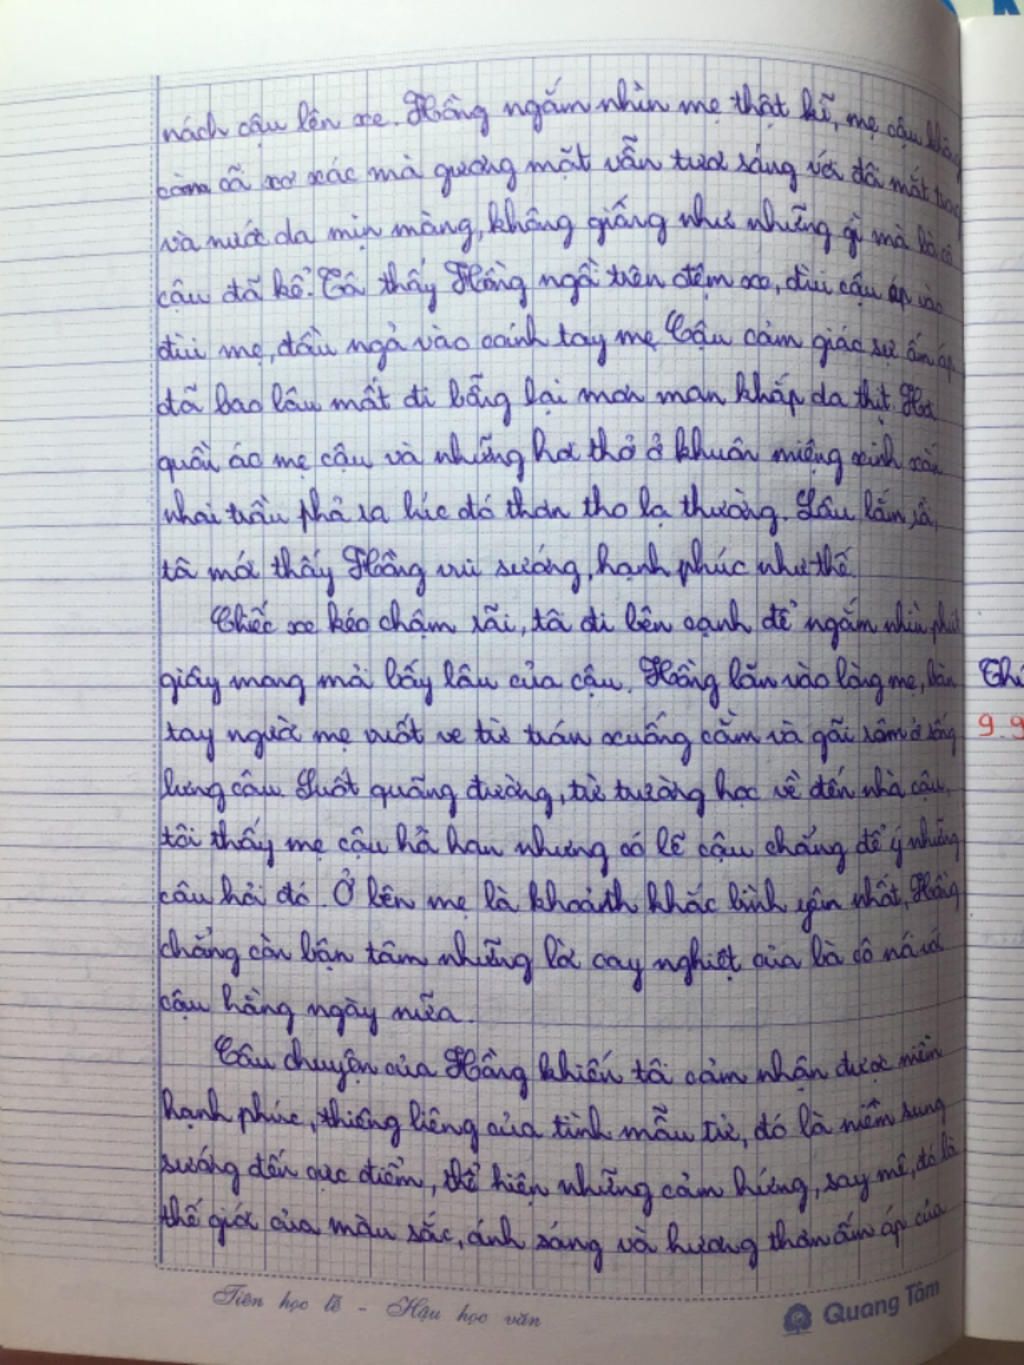 nách cậu lên xe. Hồng ngắm nhìn mẹ thật kĩ, mẹ cậu không
còm cõi xơ xác mà gương mặt vẫn tươi sáng với đôi mắt trong
và nước da mịn màng, không giống như những gì mà bà cô
cậu đã kể. Tôi thấy Hồng ngồi trên đệm xe, đùi cậu áp vào
đùi mẹ, đầu ngả vào cánh tay mẹ Cậu cảm giác sự ấm áp
đã bao lâu mất đi bỗng lại mơn man khắp da thịt. Hơi
quần áo mẹ cậu và những hơi thở ở khuôn miệng xinh xắn
nhai trầu phả ra lúc đó thơm tho lạ thường. Lâu lắm rồi,
tôi mới thấy Hồng vui sướng, hạnh phúc như thế.
Chiếc xe kéo chậm rãi, tôi đi bên cạnh để ngắm nhìn phút
giây mong mỏi bấy lâu của cậu. Hồng lăn vào lòng mẹ, bàn
tay người mẹ vuốt ve từ trán xuống cằm và gãi rôm ở sống
lưng cậu. Suốt quãng đường, từ trường học về đến nhà cậu,
tôi thấy mẹ cậu hỏi han nhưng có lẽ cậu chẳng để ý những
câu hỏi đó. Ở bên mẹ là khoảnh khắc bình yên nhất, Hồng
chẳng còn bận tâm những lời cay nghiệt của bà cô nói với
cậu hằng ngày nữa.
Câu chuyện của Hồng khiến tôi cảm nhận được niềm
hạnh phúc, thiêng liêng của tình mẫu tử, đó là niềm sung
sướng đến cực điểm, thể hiện những cảm hứng, say mê, đó là
thế giới của màu sắc, ánh sáng và hương thơm ấm áp của
Tiên học lễ - Hậu học văn
Quang Tâm
Thứ
9.9